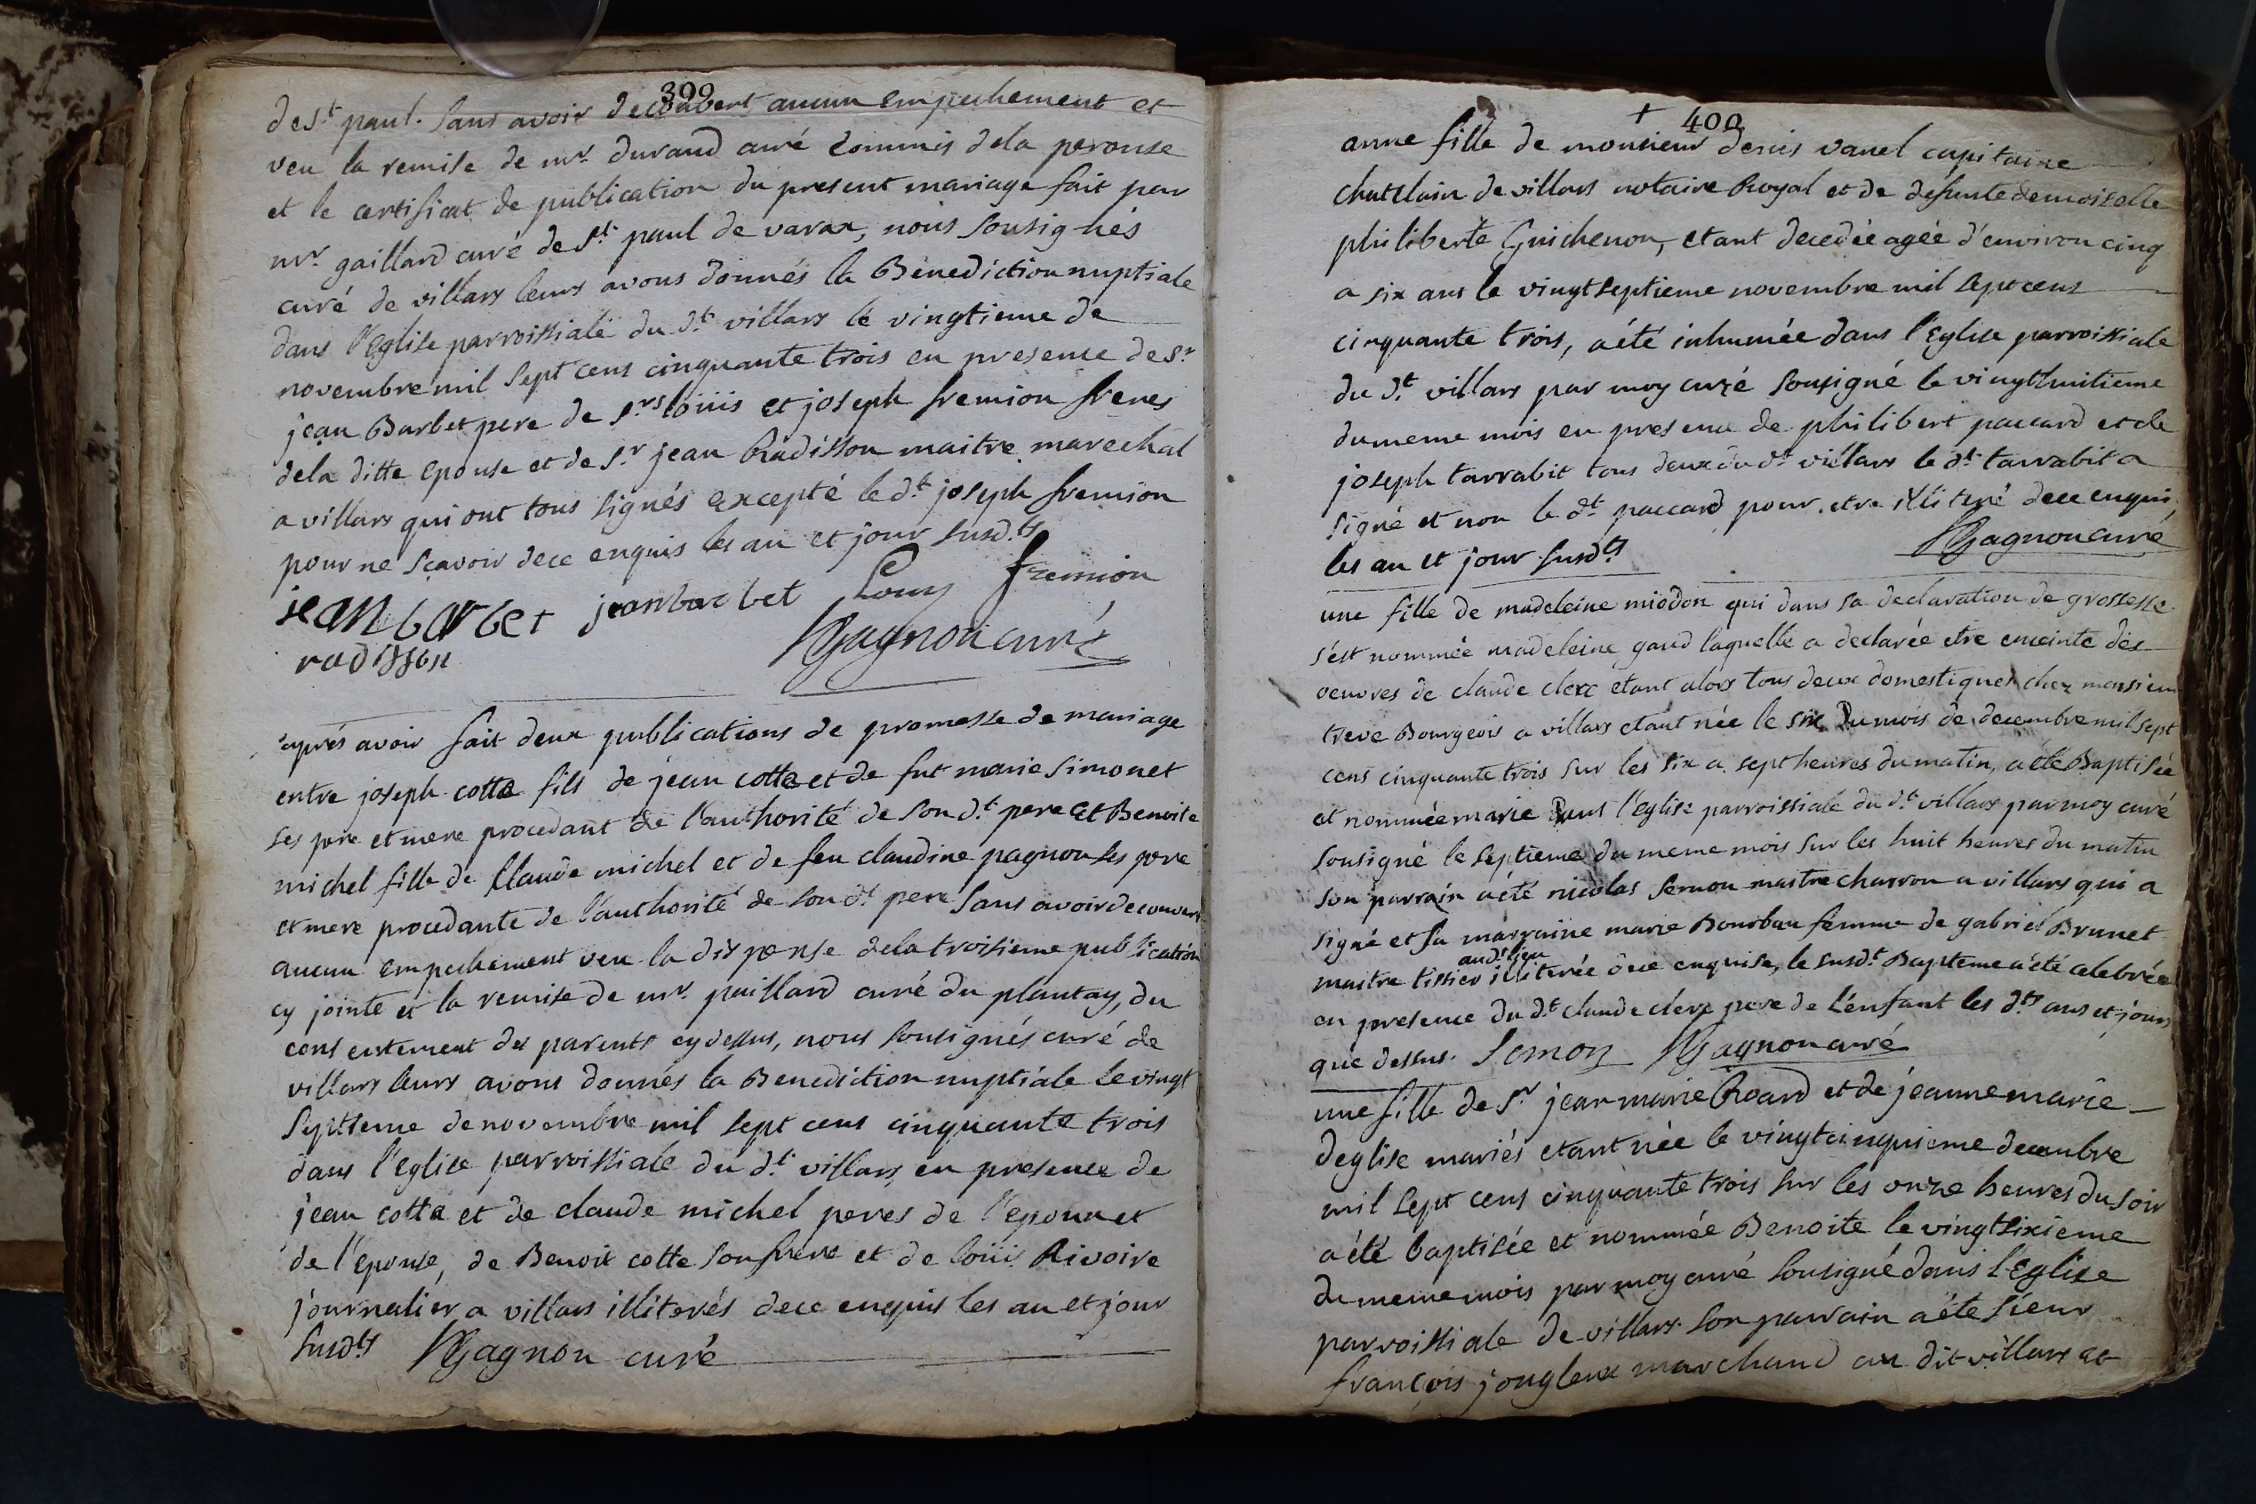 399
de st. paul. sans avoir decouvert aucun empechement et
veu la remise de mr. durand curé commis dela perouse
et le certificat de publication du present mariage fait par
mr. gaillard curé de st. paul de varax, nous sousignés
curé de villars leurs avons donnés la Bénediction nuptiale
dans l'Eglise parroissiale du dt. villars le vingtieme de
novembre mil sept cens cinquante trois en presence de sr.
jean Barbet pere de srs. loüis et joseph fremion freres
dela ditte epouse et de sr. jean Radisson maitre marechal
a villars qui ont tous signés excepté le dt. joseph fremion
pour ne sçavoir de ce enquis les an et jour susdts
jean barbet jean barbet Louy fremion
radisson Gagnon curé
aprés avoir fait deux publications de promesse de mariage
entre joseph cotte fils de jean cotte et de fut marie simonet
ses pere et mere procedant de l'authorité de son dt. pere et Benoite
michel fille de Claude michel et de feu claudine pagnon ses pere
et mere procedante de l'authorité de son dt. pere sans avoir decouvert
aucun empechement veu la dispense dela troisieme publication
cy jointe et la remise de mr. paillard curé du plantay, du
consentement des parents cy dessus, nous sousignés curé de
villars leurs avons donnés la Benediction nuptiale le vingt
septieme de novembre mil sept cens cinquante trois
dans l'eglise parroissiale du dt. villars en presence de
jean cotte et de claude michel peres de l'epoux et
de l'epouse, de Benoit cotte son frere et de loüis Rivoire
journalier a villars illiterés de ce enquis les an et jour
susdts Gagnon curé
+ 400
anne fille de monsieur denis vanel capitaine
chatelain de villars notaire Royal et de defunte demoiselle
philiberte Guichenon, etant decedée agée d'environ cinq
a six ans le vingtseptieme novembre mil sept cens
cinquante trois, a été inhumée dans l'Eglise parroissiale
du dt. villars par moy curé sousigné le vingthuitieme
du meme mois en presence de philibert paccard et de
joseph tarrabit tous deux du dt villars le dt. tarrabit a
signé et non le dt. paccard pour etre illiteré de ce enquis
les an et jour susdts Gagnon curé
une fille de madeleine miodon qui dans sa declaration de grossesse
s'est nommée madeleine gaud laquelle a declarée etre enceinte des
oeuvres de claude clerc etant alors tous deux domestiques chez monsieur
treve Bourgeois a villars etant née le six du mois de decembre mil sept
cens cinquante trois sur les six a sept heures du matin, a été Baptisée
et nommée marie dans l'eglise parroissiale du dt. villars par moy curé
sousigné le septieme du meme mois sur les huit heures du matin
son parrain a été nicolas semon maitre charron a villars qui a
signé et sa marraine marie Bourban femme de gabriel Brunet
maitre tissier audt. lieu illiterée de ce enquise, le susdt. Bapteme a été celebrée
en presence du dt. claude clerc pere de l'enfant les dts ans et jours
que dessus. Semon Gagnon curé
une fille de sr. jean marie Roard et de jeanne marie
deglise mariés etant née le vingtcinquieme decembre
mil sept cens cinquante trois sur les onze heures du soir
a été baptisée et nommée Benoite le vingtsixieme
du meme mois par moy curé sousigné dans l'Eglise
parroissiale de villars son parrain a été sieur
françois jongleux marchand au dit villars et